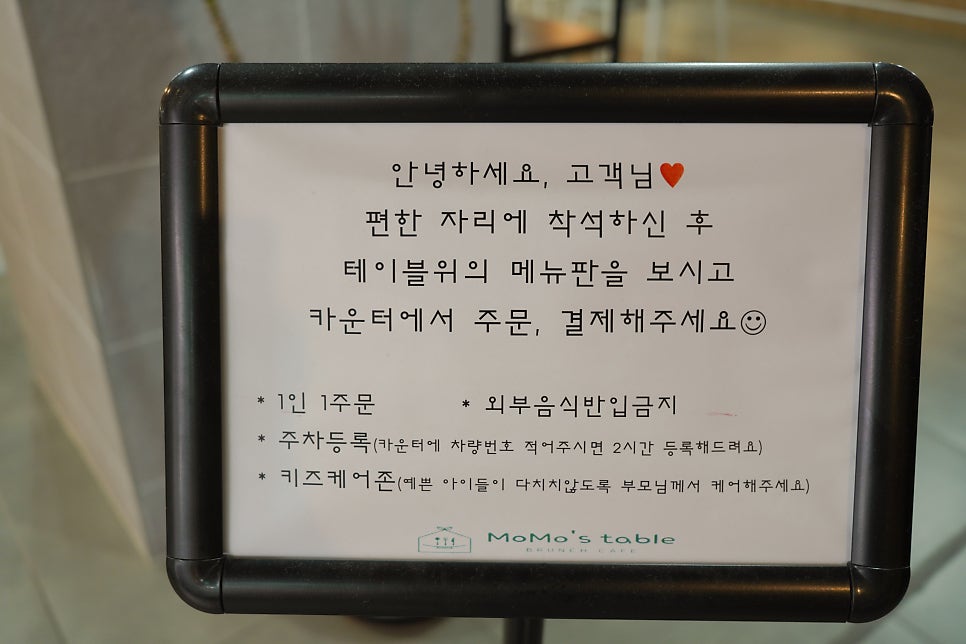 안녕하세요, 고객님♥
편한 자리에 착석하신 후
테이블위의 메뉴판을 보시고
카운터에서 주문, 결제해주세요☺
* 1인 1주문 * 외부음식반입금지
* 주차등록(카운터에 차량번호 적어주시면 2시간 등록해드려요)
* 키즈케어존(예쁜 아이들이 다치치않도록 부모님께서 케어해주세요)
MoMo's table
BRUNCH CAFE